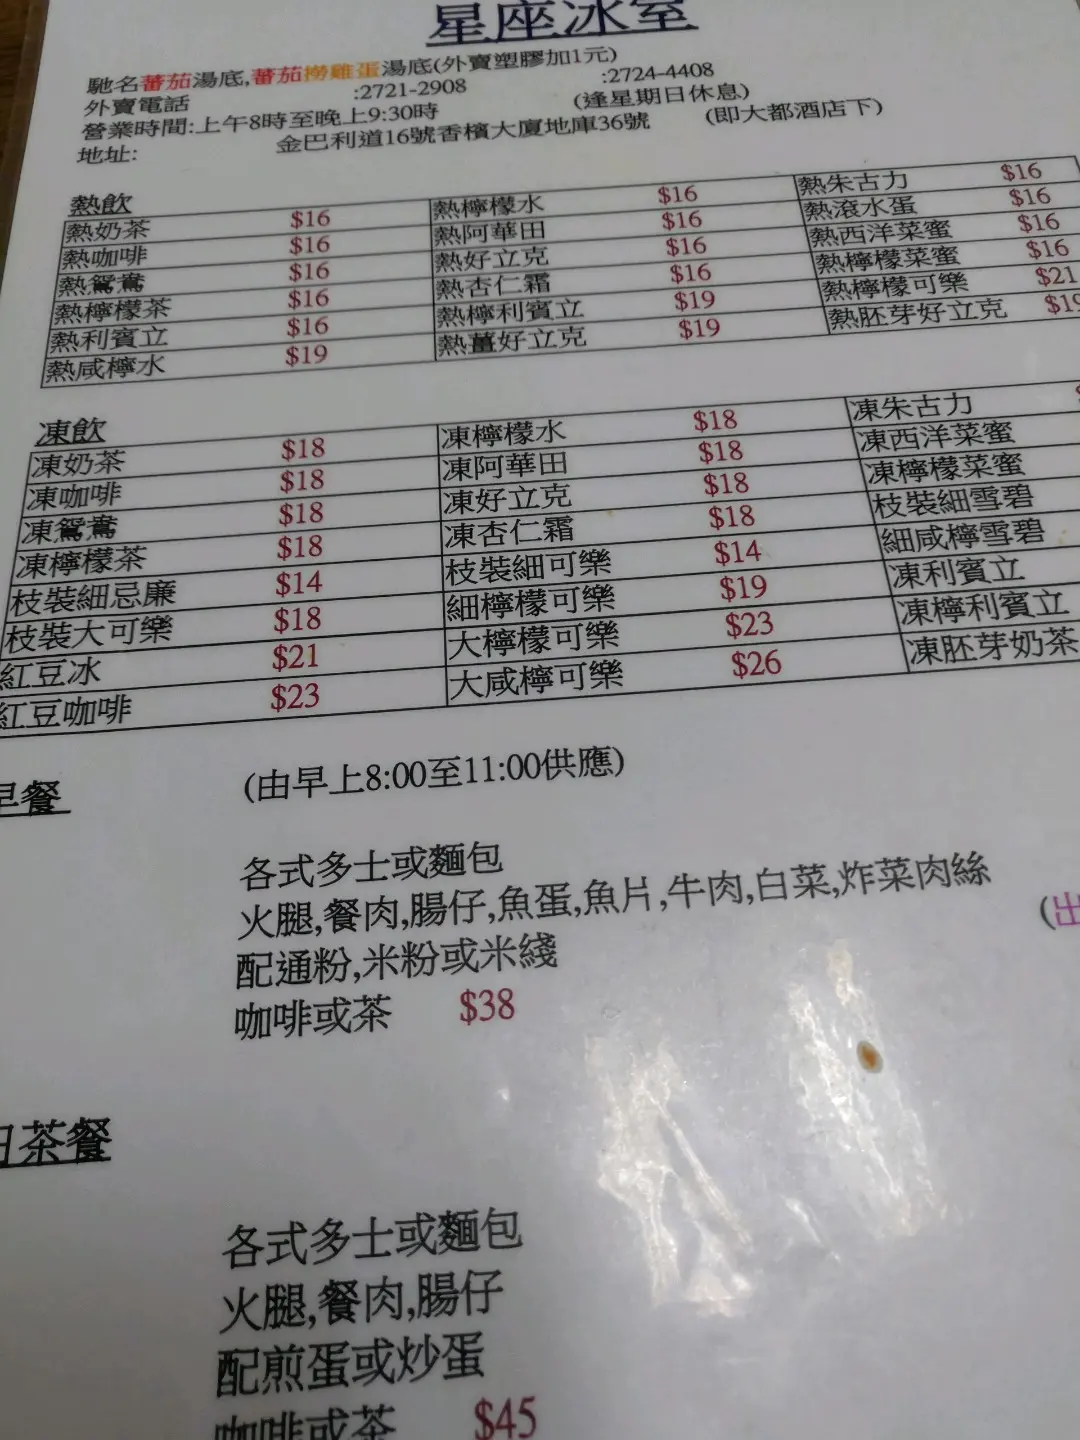 星座冰室
馳名蕃茄湯底,蕃茄撈雞蛋湯底(外賣塑膠加1元)
外賣電話 :2721-2908 :2724-4408
營業時間:上午8時至晚上9:30時 (逢星期日休息)
地址: 金巴利道16號香檳大廈地庫36號 (即大都酒店下)
熱飲
熱奶茶 $16 熱檸檬水 $16 熱朱古力 $16
熱咖啡 $16 熱阿華田 $16 熱滾水蛋 $16
熱鴛鴦 $16 熱好立克 $16 熱西洋菜蜜 $16
熱檸檬茶 $16 熱杏仁霜 $16 熱檸檬菜蜜 $16
熱利賓立 $16 熱檸利賓立 $19 熱檸檬可樂 $21
熱咸檸水 $19 熱薑好立克 $19 熱胚芽好立克
凍飲
凍奶茶 $18 凍檸檬水 $18 凍朱古力
凍咖啡 $18 凍阿華田 $18 凍西洋菜蜜
凍鴛鴦 $18 凍好立克 $18 凍檸檬菜蜜
凍檸檬茶 $18 凍杏仁霜 $18 枝裝細雪碧
枝裝細忌廉 $14 枝裝細可樂 $14 細咸檸雪碧
枝裝大可樂 $18 細檸檬可樂 $19 凍利賓立
紅豆冰 $21 大檸檬可樂 $23 凍檸利賓立
紅豆咖啡 $23 大咸檸可樂 $26 凍胚芽奶茶
早餐 (由早上8:00至11:00供應)
各式多士或麵包
火腿,餐肉,腸仔,魚蛋,魚片,牛肉,白菜,炸菜肉絲
(出
配通粉,米粉或米綫
咖啡或茶 $38
日茶餐
各式多士或麵包
火腿,餐肉,腸仔
配煎蛋或炒蛋
咖啡或茶 $45